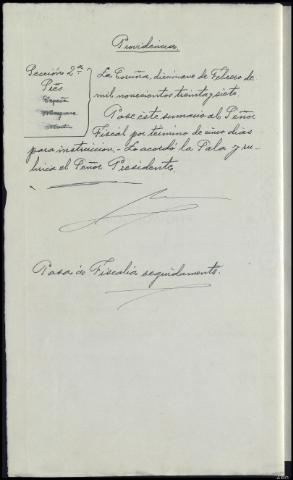 Providencia
Sección 2ª
Pres
España
La Coruña, diecinueve de Febrero de
mil novecientos treinta y siete
Pase éste sumario al Señor
Fiscal por término de cinco dias
para instruccion.- Lo acordó la Sala y ru-
brica el Señor Presidente
Pasa á Fiscalia seguidamente.